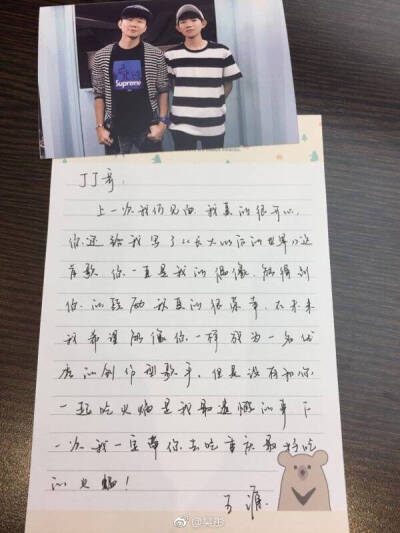 Supreme
JJ哥，
上一次我们见面我真的很开心，
你还给我写了《长大以后的世界》这
首歌。你一直是我的偶像，能得到
你的鼓励我真的很荣幸，在未来
我希望能像你一样成为一名优
秀的创作型歌手，但是没有和你
一起吃火锅是我最遗憾的事下
一次我一定带你去吃重庆最好吃
的火锅！
王源.